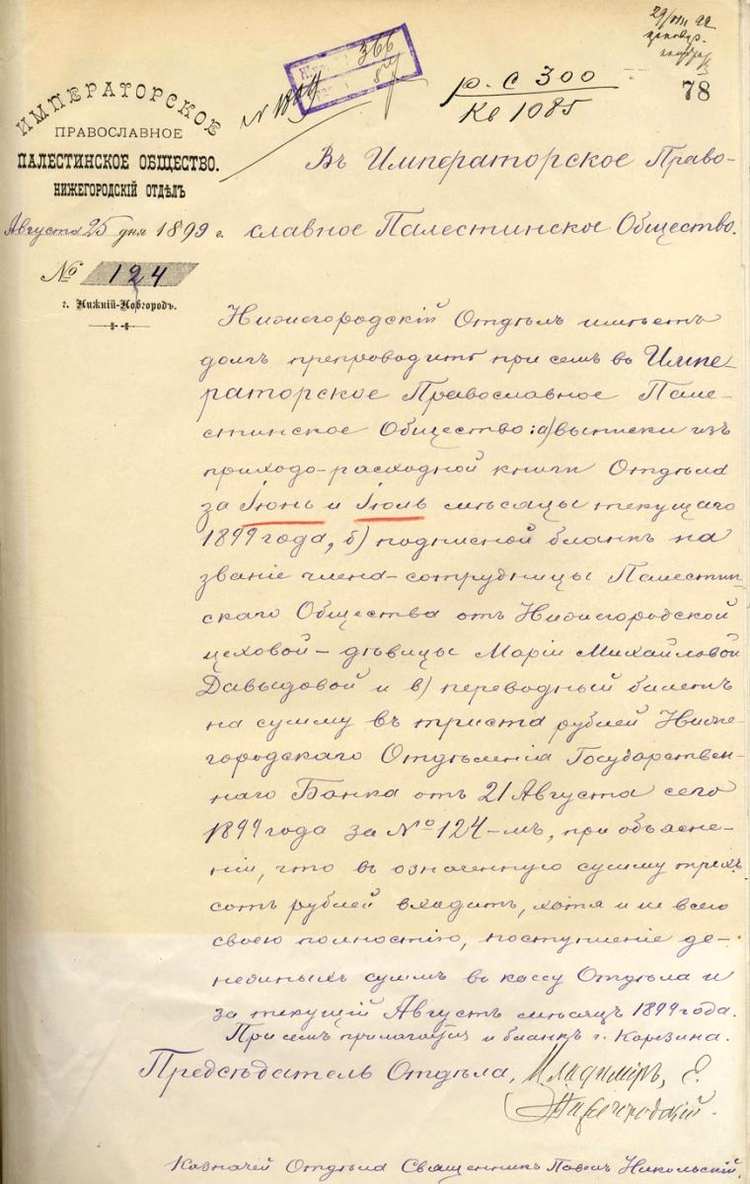 78
р. с 300
Кв 1085
366
ИМПЕРАТОРСКОЕ
ПРАВОСЛАВНОЕ
ПАЛЕСТИНСКОЕ ОБЩЕСТВО.
НИЖЕГОРОДСКІЙ ОТДѢЛЪ
Августа 25 дня 1899 г.
№ 124
г. Нижній-Новгородъ.
Въ Императорское Право-
славное Палестинское Общество.
Нижегородскій Отдѣлъ имѣетъ
долгъ препроводить при семъ въ Импе-
раторское Православное Пале-
стинское Общество: а) выписки изъ
приходо-расходной книги Отдѣла
за Іюнь и Іюль мѣсяцы текущаго
1899 года, б) подписной бланкъ на
званіе члена-сотрудницы Палестин-
скаго Общества отъ Нижегородской
цеховой-дѣвицы Маріи Михайловой
Давыдовой и в) переводный билетъ
на сумму въ триста рублей Ниже-
городскаго Отдѣленія Государствен-
наго Банка отъ 21 Августа сего
1899 года за № 124-мъ, при объясне-
ніи, что въ означенную сумму трех-
сотъ рублей входитъ, хотя и не всею
своею полностію, поступленіе де-
нежныхъ суммъ въ кассу Отдѣла и
за текущій Августъ мѣсяцъ 1899 года.
При семъ прилагается и бланкъ г. Корезина.
Предсѣдатель Отдѣла, Владиміръ, Е.
Нижегородскій.
Казначей Отдѣла Священникъ Павелъ Никольскій.